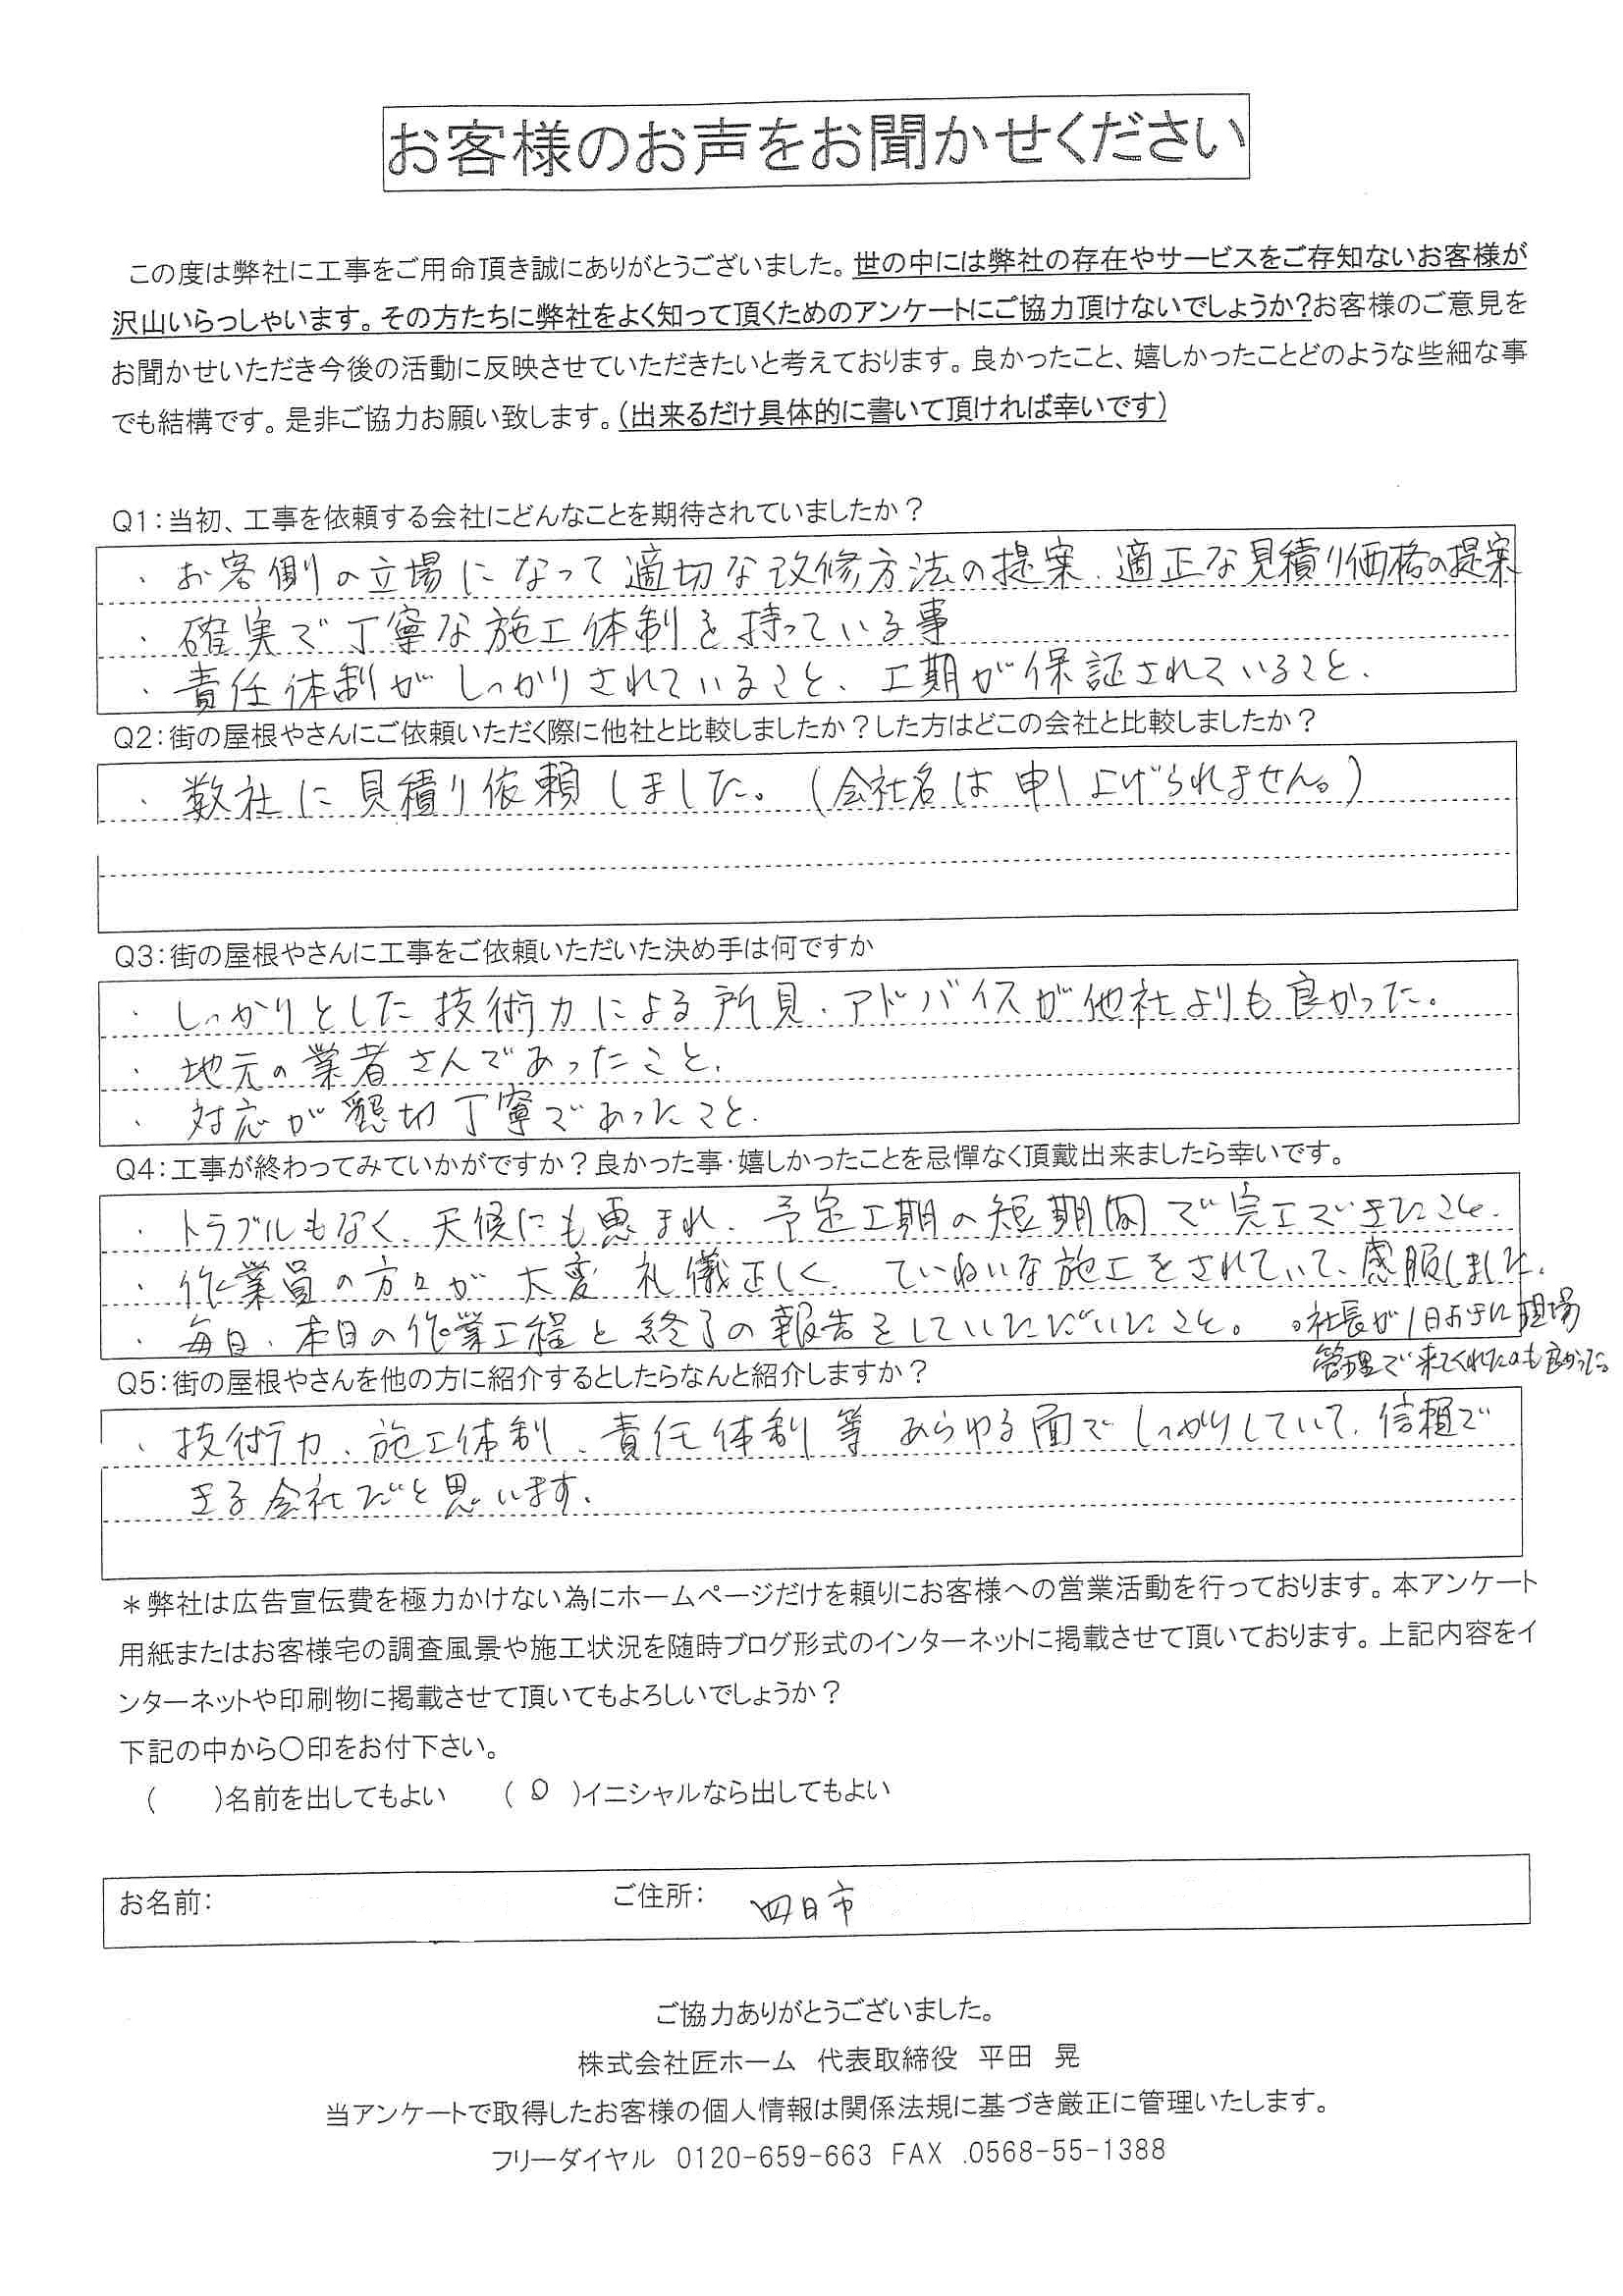 お客様のお声をお聞かせください
この度は弊社に工事をご用命頂き誠にありがとうございました。世の中には弊社の存在やサービスをご存知ないお客様が
沢山いらっしゃいます。その方たちに弊社をよく知って頂くためのアンケートにご協力頂けないでしょうか?お客様のご意見を
お聞かせいただき今後の活動に反映させていただきたいと考えております。良かったこと、嬉しかったことどのような些細な事
でも結構です。是非ご協力お願い致します。(出来るだけ具体的に書いて頂ければ幸いです)
Q1:当初、工事を依頼する会社にどんなことを期待されていましたか?
・お客側の立場になって適切な改修方法の提案、適正な見積り価格の提案
・確実で丁寧な施工体制を持っている事
・責任体制がしっかりされていること、工期が保証されていること.
Q2:街の屋根やさんにご依頼いただく際に他社と比較しましたか?した方はどこの会社と比較しましたか?
・数社に見積り依頼しました。(会社名は申し上げられません。)
Q3:街の屋根やさんに工事をご依頼いただいた決め手は何ですか
・しっかりとした技術力による所見・アドバイスが他社よりも良かった。
・地元の業者さんであったこと.
・対応が懇切丁寧であったこと.
Q4:工事が終わってみていかがですか?良かった事・嬉しかったことを忌憚なく頂戴出来ましたら幸いです。
・トラブルもなく、天候にも恵まれ、予定工期の短期間で完工できたこと.
・作業員の方々が大変礼儀正しく、ていねいな施工をされていて、感服しました.
・毎日、本日の作業工程と終了の報告をしていただいたこと。 。社長が1日おきに現場
管理で来てくれたのも良かった。
Q5:街の屋根やさんを他の方に紹介するとしたらなんと紹介しますか?
・技術力、施工体制、責任体制等あらゆる面でしっかりしていて、信頼で
きる会社だと思います.
*弊社は広告宣伝費を極力かけない為にホームページだけを頼りにお客様への営業活動を行っております。本アンケート
用紙またはお客様宅の調査風景や施工状況を随時ブログ形式のインターネットに掲載させて頂いております。上記内容をイ
ンターネットや印刷物に掲載させて頂いてもよろしいでしょうか?
下記の中から〇印をお付下さい。
(  )名前を出してもよい  ( 〇 )イニシャルなら出してもよい
お名前: ご住所: 四日市
ご協力ありがとうございました。
株式会社匠ホーム 代表取締役 平田 晃
当アンケートで取得したお客様の個人情報は関係法規に基づき厳正に管理いたします。
フリーダイヤル 0120-659-663 FAX .0568-55-1388